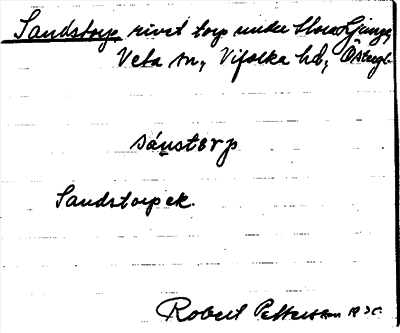 Sandstorp rivet torp under Stora Ljunga,
Veta sn, Vifolka hd, Östergl.
sánstɛrp
Sandstorp ek.
Robert Pettersson 1930